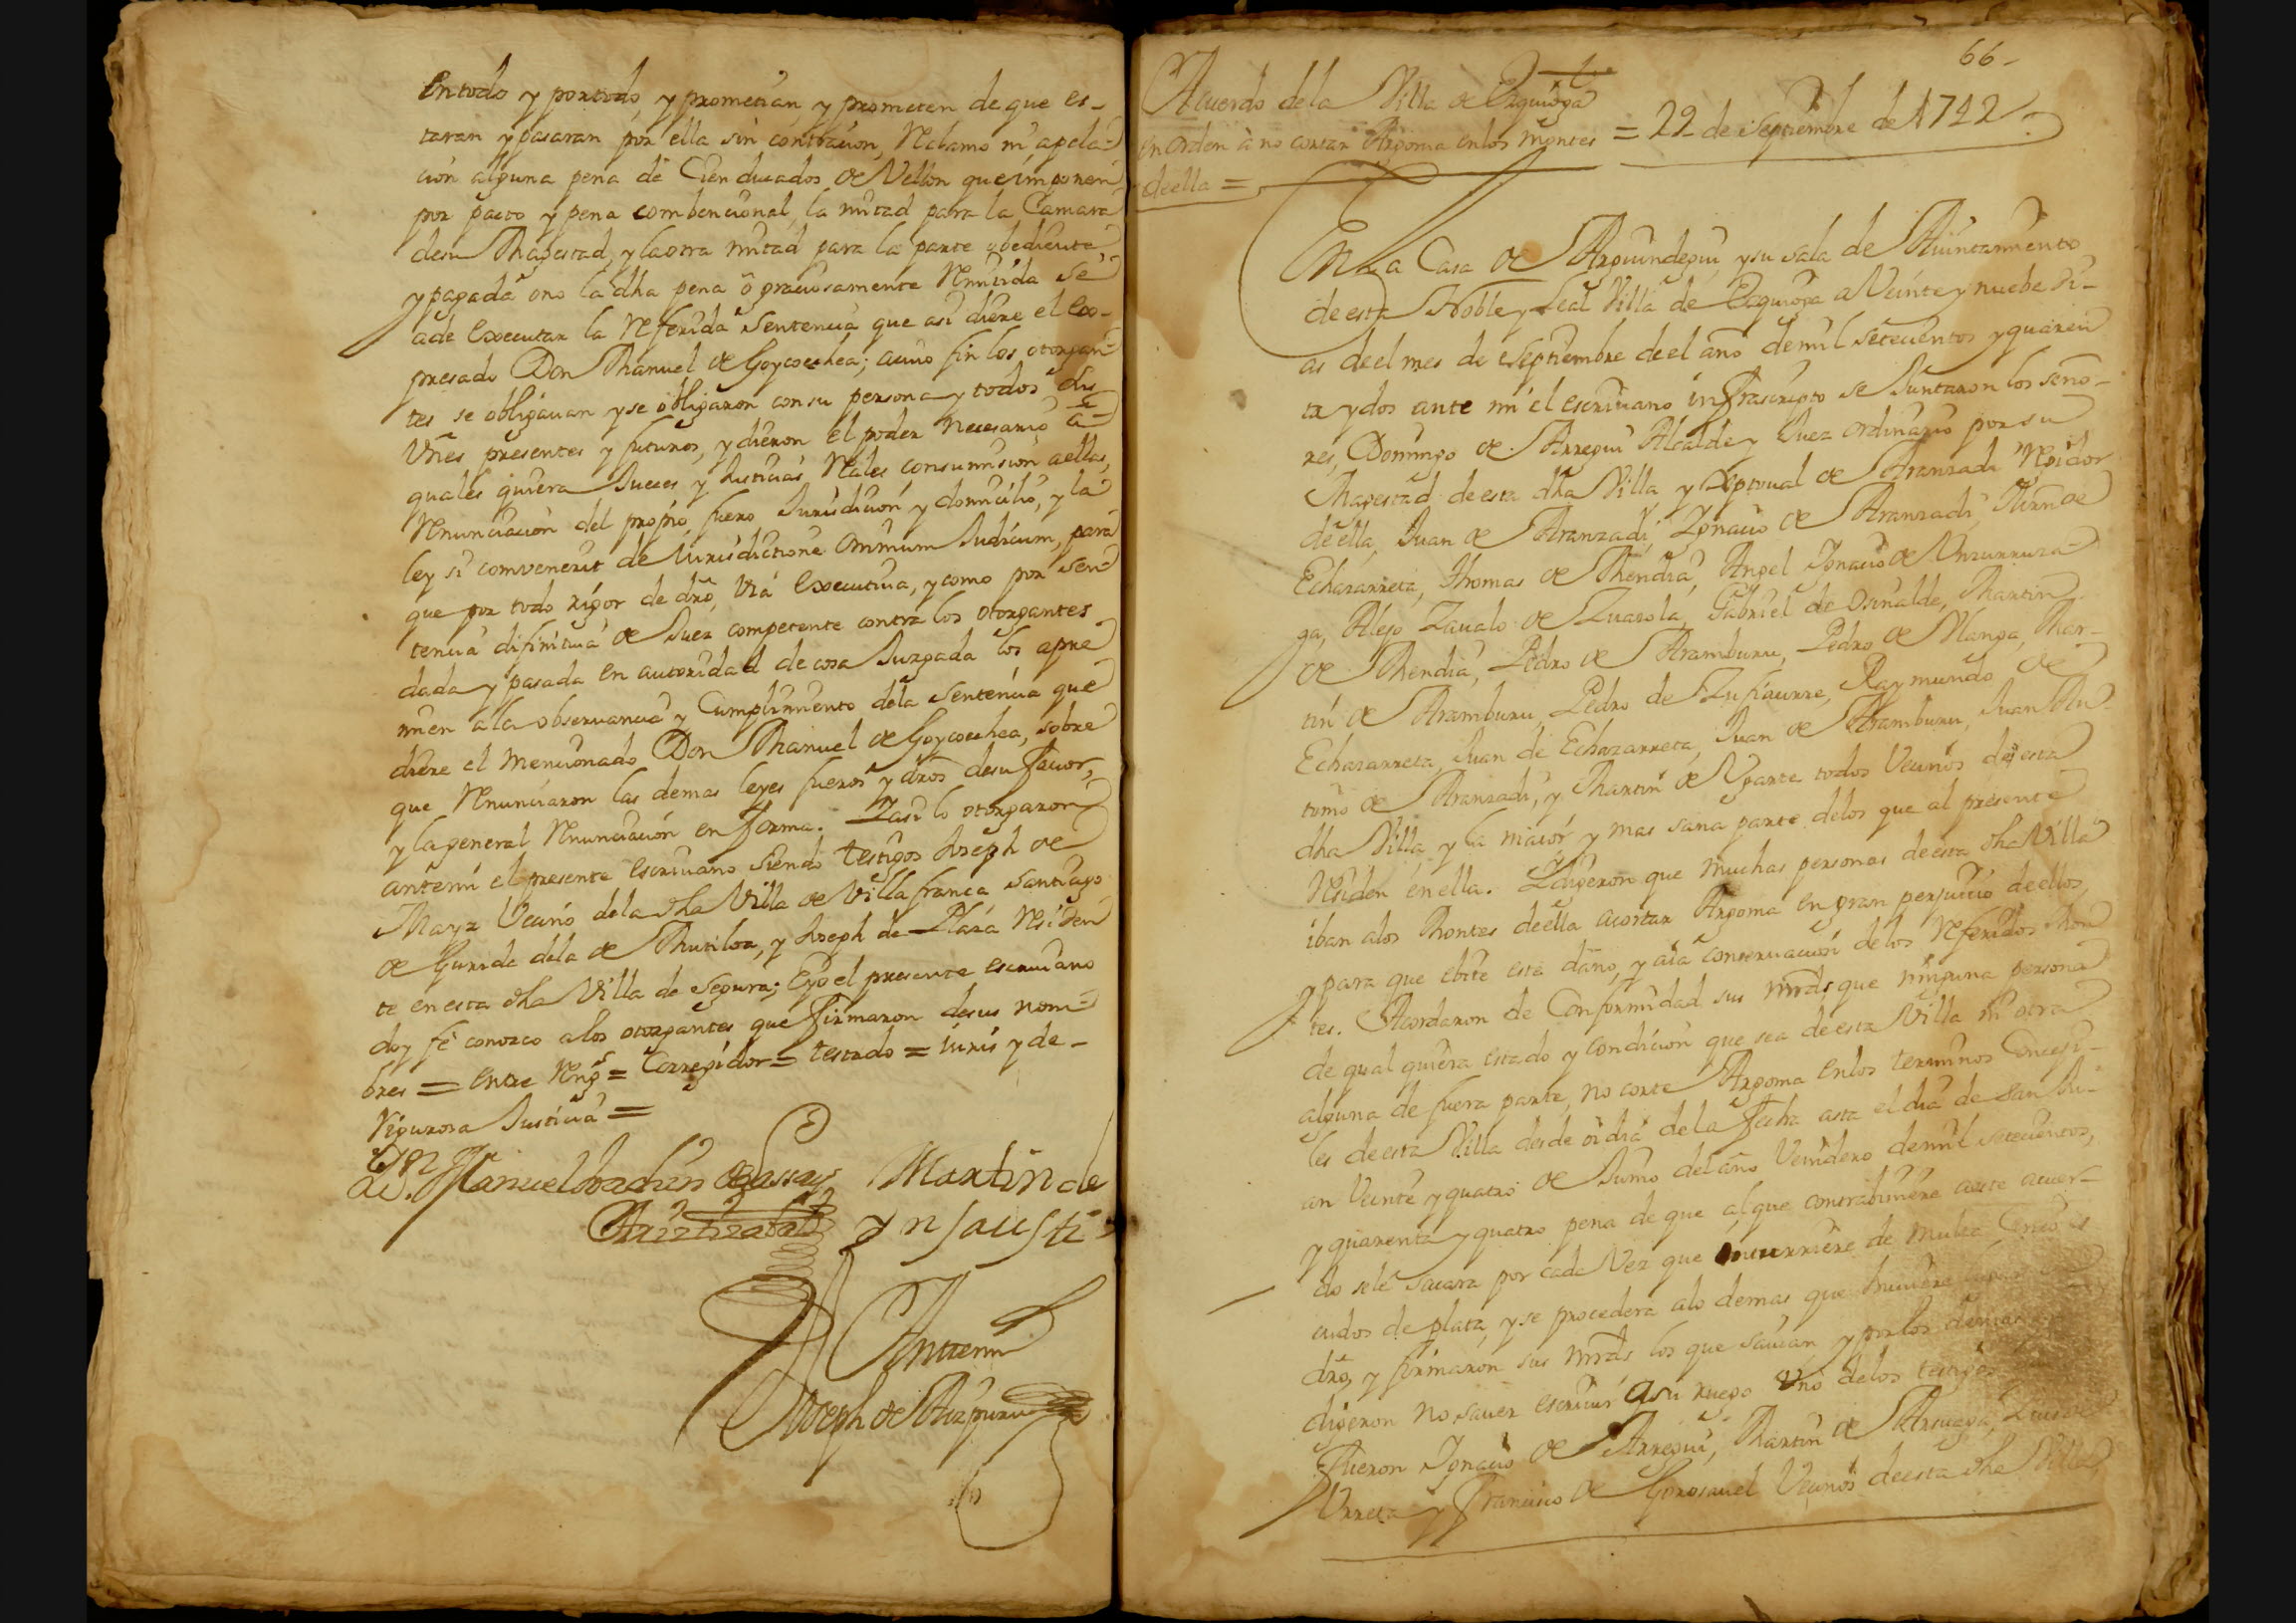 en todo y portodo, y prometian y prometen de que es-
taran y pasaran por ella sin contracion, Reclamo ni apela-
cion alguna pena de Cien ducados de Vellon que imponen
por pacto y pena combencional, la mitad para la Camara
de su Magestad, y la otra mitad para la parte obediente
y pagada ono la dha pena ô graciosamente Remitida se
ade executar la Referida sentencia que asi diere el ex-
presado Don Manuel de Goycoechea; acuio fin los otorgan-
tes se obligauan y se obligaron con su persona y todos sus
Vnes presentes y futuros, y dieron el poder necesario a
quales quiera Jueces y Justicias Rales con sumision a ellas,
Renunciacion del propio fuero Jurisdicion y domicilio, y la
ley si convenerit de Iurisdictione Omnium Iudicum, para
que por todo rigor de dro, Via executiua, y como por sen-
tencia difinitiua de Juez competente contra los otorgantes
dada y pasada en autoridad de cosa Juzgada los apre
mien alla obseruancia y Cumplimiento dela Sentencia que
diere el mencionado Don Manuel de Goycoechea, sobre
que Renunciaron las demas leyes fueros y dros de su fauor,
y la general Renunciacion en forma. Y asi lo otorgaron
ante mi el presente escriuano siendo testigos Joseph de
Mayz Vecino dela dha Villa de Villafranca Santiago
de Guride dela de Mutiloa, y Joseph de Plaza Residen
te en esta dha Villa de Segura; E yo el presente escriuano
doy fe conozco a los otorgantes que firmaron de sus nom-
bres = entre Rengs = Corregidor = testado = iuris y de -
Vigurosa Justicia =
Dn Manuel Joachin de Lassay
Martin de
Arizti zabal
Ynsausti
Ante mi
Joseph de Aizpuru
66-
Acuerdo dela Villa de Ezquioga
en orden à no cortar Argoma en los montes = 29 de Septiembre de 1742
de ella =
En la Casa de Arguindegui y su sala de Aiuntamiento
de esta Noble y Leal Villa de Ezquioga a Veinte y nuebe di-
as de el mes de Septiembre de el año de mil setecientos y quaren
ta y dos ante mi el escriuano infrascripto se Juntaron los seño-
res, Domingo de Arregui Alcalde y Juez ordinario por su
Magestad de esta dha Villa y Pasqual de Aranzadi Regidor
de ella, Juan de Aranzadi, Ignacio de Aranzadi, Juan de
Echazarreta, Thomas de Mendia, Angel Ignacio de Vnzurrunza-
ga, Alejo Zaualo de Zuazola, Gabriel de Osinalde, Martin
de Mendia, Pedro de Aramburu, Pedro de Alanga, Mar-
tin de Aramburu, Pedro de Zufiaurre, Raymundo de
Echazarreta, Juan de Echazarreta, Juan de Aramburu, Juan An-
tonio de Aranzadi, y Martin de Vgarte todos Vecinos de esta
dha Villa y la maior y mas sana parte delos que al presente
Residen en ella. Y digeron que muchas personas de esta dha Villa
iban a los Montes de ella a cortar Argoma en gran perjuicio de ellos,
y para que ebite este daño, y aia conseruacion delos Referidos Mon
tes. Acordaron de Conformidad sus mrds que ninguna persona
de qual quiera estado y condicion que sea de esta Villa ni otra
alguna de fuera parte, no corte Argoma en los terminos Concegi-
les de esta Villa desde oi dia dela fecha asta el dia de san Ju-
an Veinte y quatro de Junio del año Venidero de mil setecientos,
y quarenta y quatro pena de que al que contrabiniere a este acuer-
do se le sacara por cada Vez que incurriere de multa Cinco es
cudos de plata, y se procedera a lo demas que huuiere lugar
dro, y firmaron sus mrds los que sauian, y por los demas
digeron no sauer escriuir a su ruego Vno delos testigos
fueron Ignacio de Arregui, Martin de Arsuaga, Luis de
Vrreta y Francisco de Gorosauel Vecinos de esta dha Villa